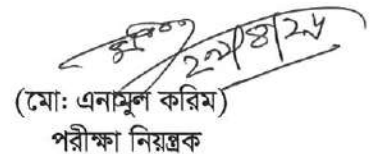 ২০/৪/২৬
(মো: এনামুল করিম)
পরীক্ষা নিয়ন্ত্রক